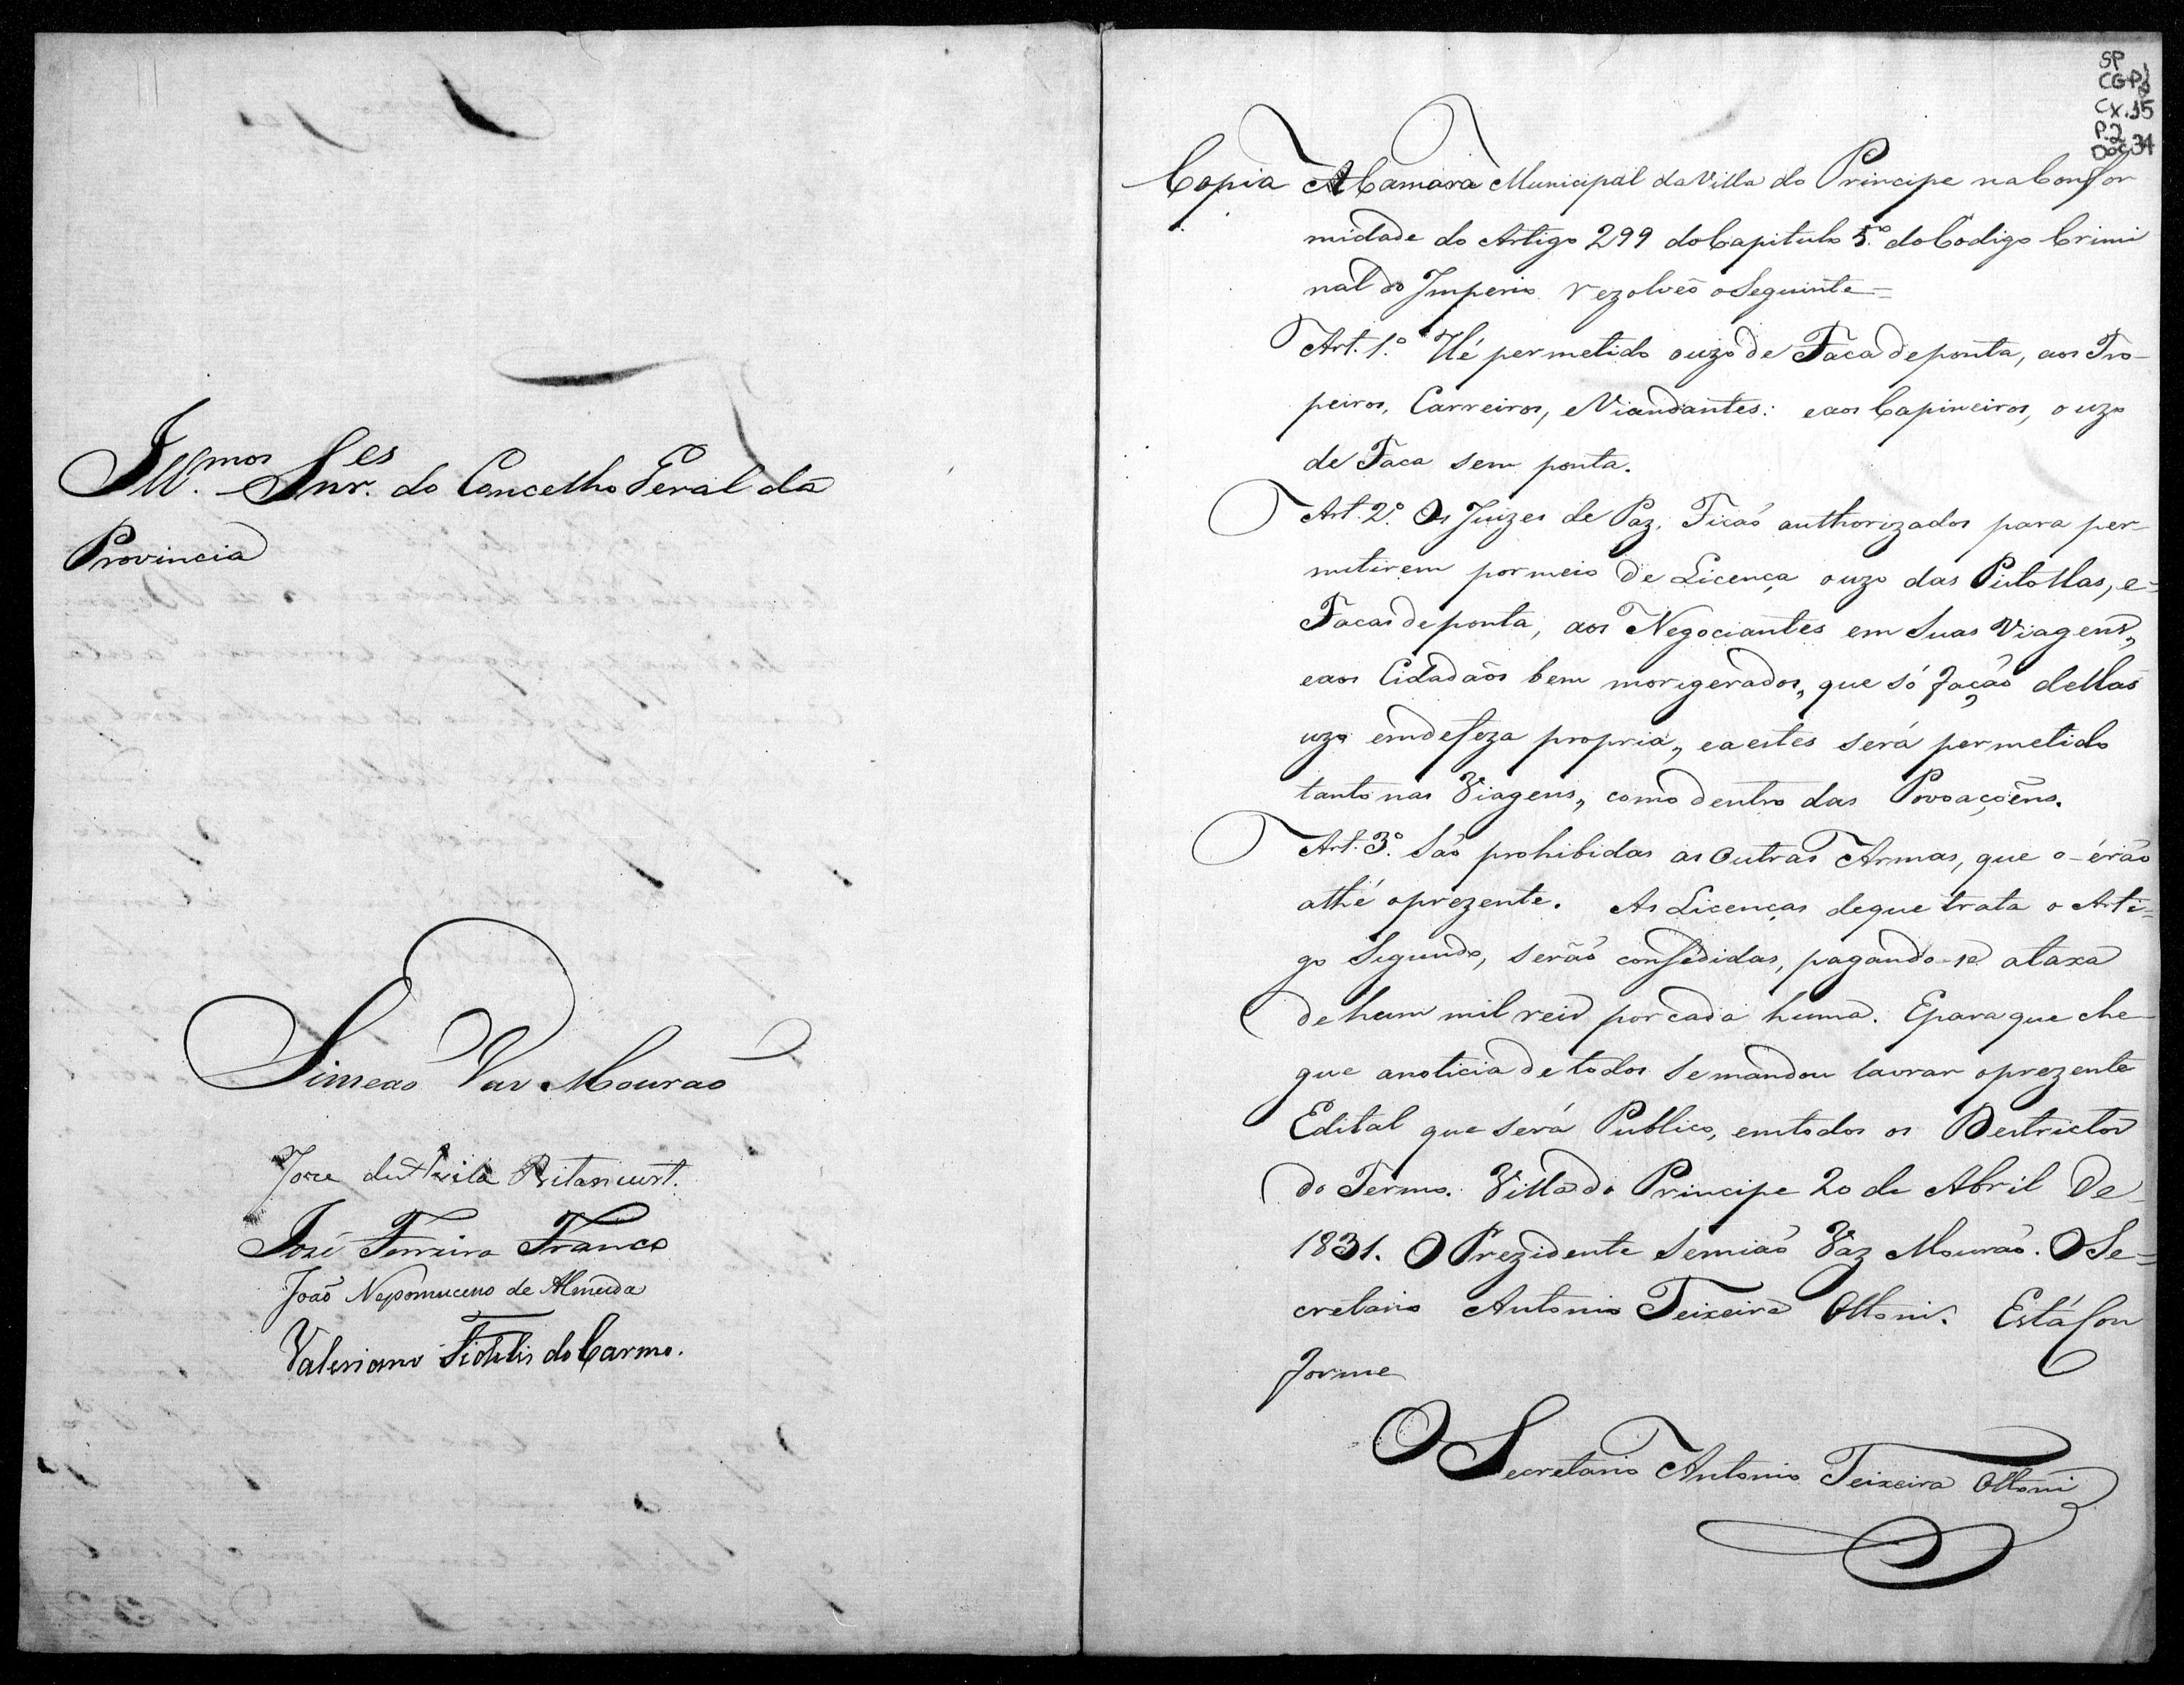 Ill.mos Snr.es do Concelho Geral da
Provincia
Simeao Vas Mourao
Joze de Avila Bitancurt.
José Ferreira Franco
João Nepomuceno de Almeida
Valeriano Fidelis do Carmo.
SP
CGP1
Cx.15
P.2
Doc 34
Copia A Camara Municipal da Villa do Principe na Confor
midade do Artigo 299 do Capitulo 5.º do Codigo Crimi
nal do Imperio rezolveo o Seguinte=
Art. 1.º Hé permetido o uzo de Faca de ponta, aos Tro-
peiros, Carreiros, e Viandantes: e aos Capineiros, o uzo
de Faca sem ponta.
Art. 2.º Os Juizes de Paz, Ficaõ authorizados para per-
mitirem por meio de Licença o uzo das Pistollas, e=
Facas de ponta, aos Negociantes em Suas Viagens,,
e aos Cidadãos bem morigerados,, que só façaõ dellas
uzo em defeza propria,, e a estes será permetido
tanto nas Viagens,, como dentro das Povoaçoens.
Art. 3.º Saõ prohibidas as Outras Armas, que o-éraõ
athé o prezente. As Licenças de que trata o Arti=
go Segundo, seraõ consedidas, pagando-se a taxa
de hum mil reis por cada huma. E para que che-
gue a noticia de todos Se mandou lavrar o prezente
Edital que será Publico, em todos os Destrictos
do Termo. Villa do Principe 20 de Abril de
1831. O Prezidente Semiaõ Vaz Mouraõ. O Se=
cretario Antonio Teixeira Ottoni. Está Con
forme
O Secretario Antonio Teixeira Ottoni